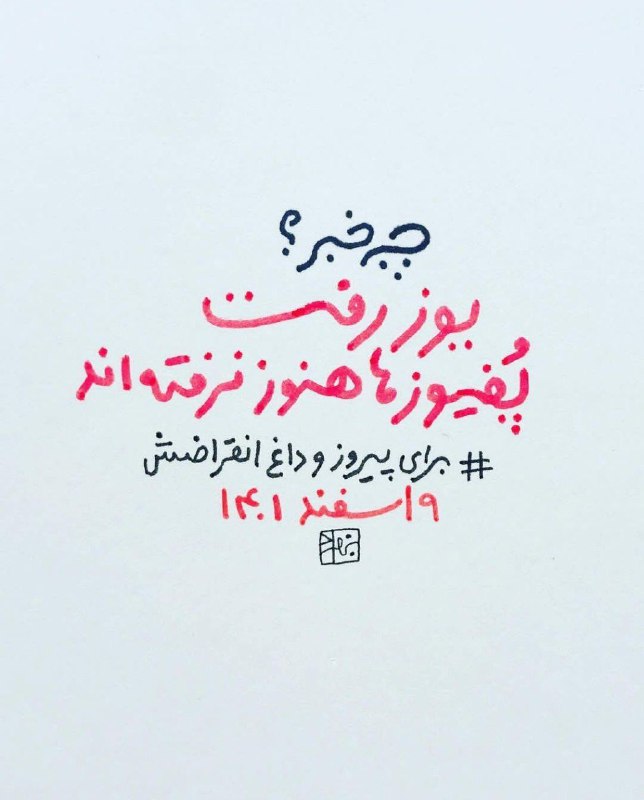 چه خبر؟
یوز رفت
پُفیوزها هنوز نرفته‌اند
#برای پیروز و داغ انقراضش
۹ اسفند ۱۴۰۱